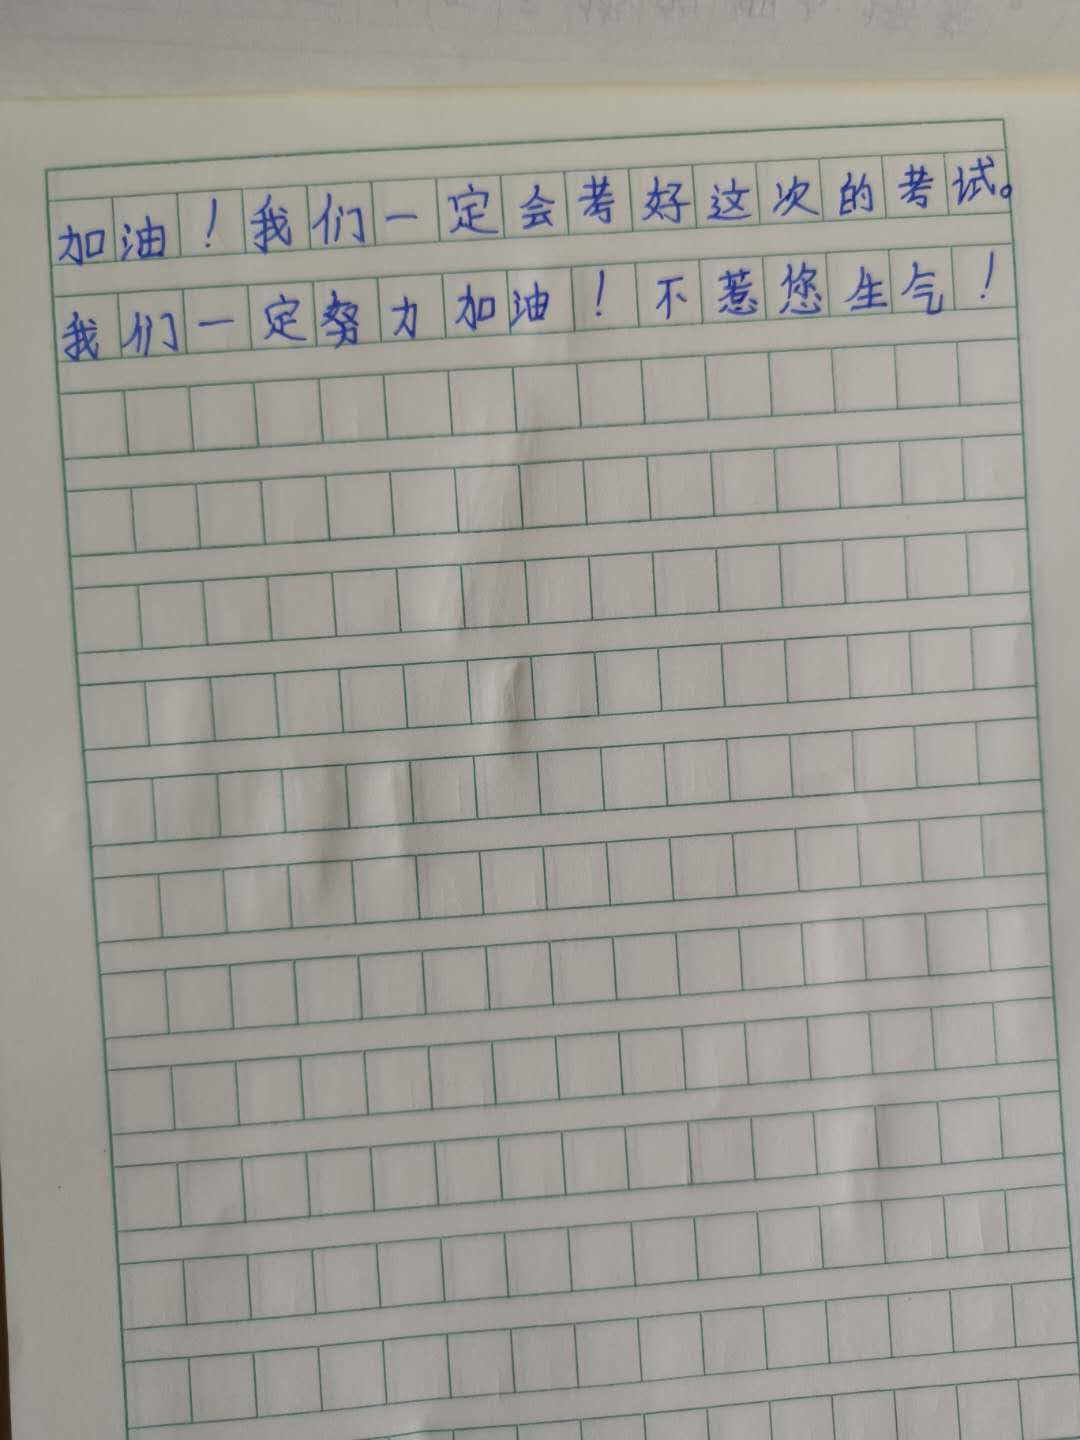 加油！我们一定会考好这次的考试。
我们一定努力加油！不惹您生气！